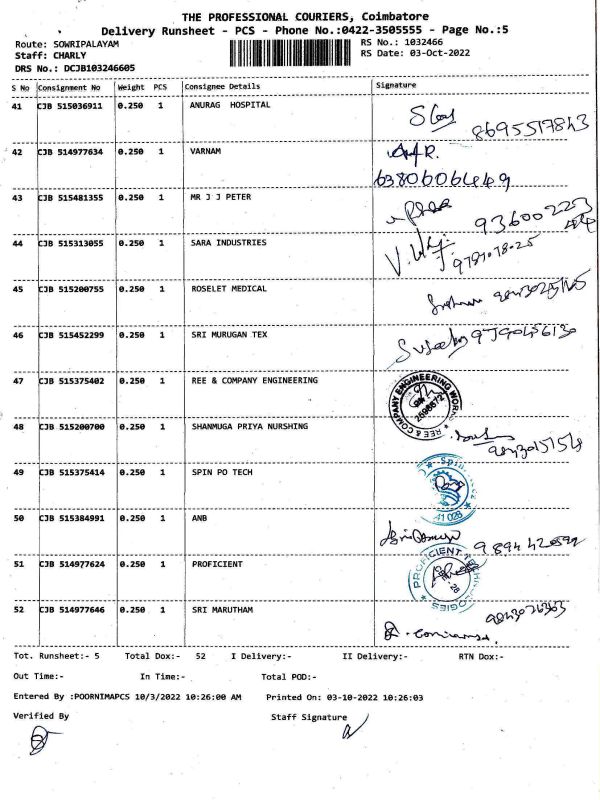 THE PROFESSIONAL COURIERS, Coimbatore
Delivery Runsheet - PCS - Phone No.:0422-3505555 - Page No.:5
Route: SOWRIPALAYAM
RS No.: 1032466
Staff: CHARLY
RS Date: 03-Oct-2022
DRS No.: DCJB103246605
S No Consignment No Weight PCS Consignee Details Signature
41 CJB 515036911 0.250 1 ANURAG HOSPITAL
8695517843
42 CJB 514977634 0.250 1 VARNAM
6380606449
43 CJB 515481355 1 0.250 MR J J PETER
93600223
44 CJB 515313055 0.250 1 SARA INDUSTRIES
45 CJB 515200755 0.250 1 ROSELET MEDICAL
46 CJB 515452299 0.250 1 SRI MURUGAN TEX
47 CJB 515375402 0.250 1 REE & COMPANY ENGINEERING
REE & COMPANY ENGINEERING WORKS
48 CJB 515200700 0.250 1 SHANMUGA PRIYA NURSHING
49 CJB 515375414 0.250 1 SPIN PO TECH
Spin
50 CJB 515384991 0.250 1 ANB
51 CJB 514977624 0.250 1 PROFICIENT
PROFICIENT TECHNOLOGIES
52 CJB 514977646 0.250 1 SRI MARUTHAM
Tot. Runsheet:- 5 Total Dox:- 52 I Delivery:- II Delivery:- RTN Dox:-
Out Time:- In Time:- Total POD:-
Entered By :POORNIMAPCS 10/3/2022 10:26:00 AM Printed On: 03-10-2022 10:26:03
Verified By Staff Signature